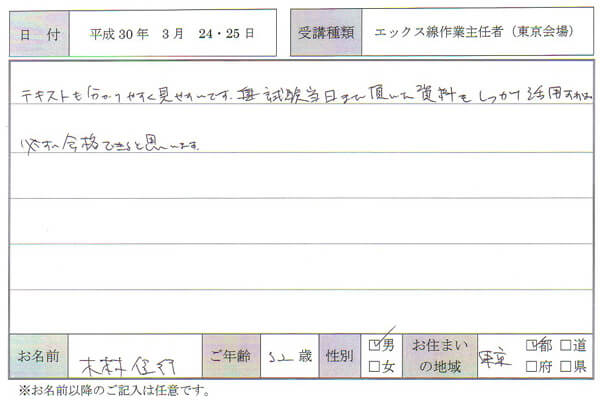 日 付 平成30年 3月 24・25日 受講種類 エックス線作業主任者（東京会場）
テキストも分かりやすく見やすいです。試験当日まで頂いた資料をしっかり活用すれば
必ず合格できると思います。
お名前 ご年齢 32歳 性別 ☑男 □女 お住まいの地域 東京 ☑都 □道 □府 □県
※お名前以降のご記入は任意です。